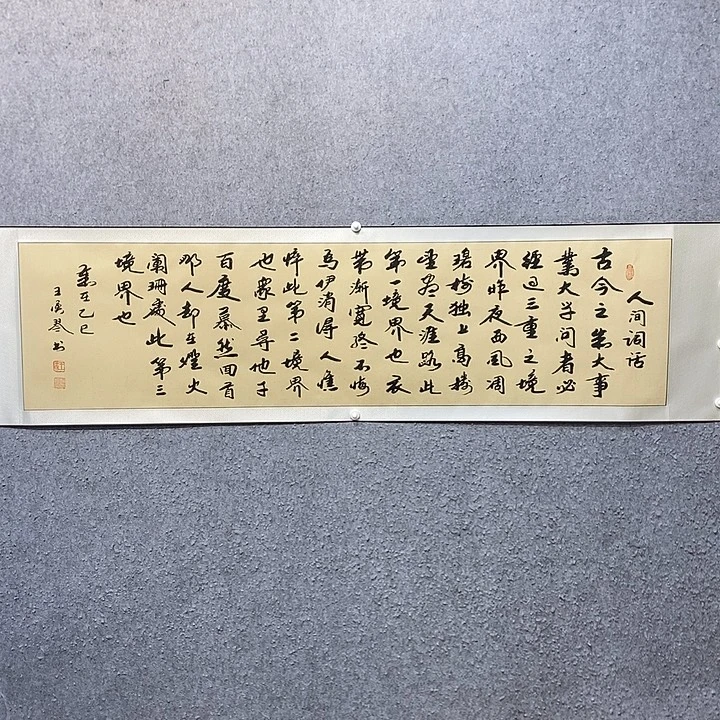 人间词话
古今之成大事
業大学问者必
經过三重之境
界昨夜西风凋
碧樹独上高楼
望尽天涯路此
第一境界也衣
带渐宽终不悔
为伊消得人憔
悴此第二境界
也眾里寻他千
百度蓦然回首
那人却在燈火
阑珊處此第三
境界也
歲在乙巳
王 琴书